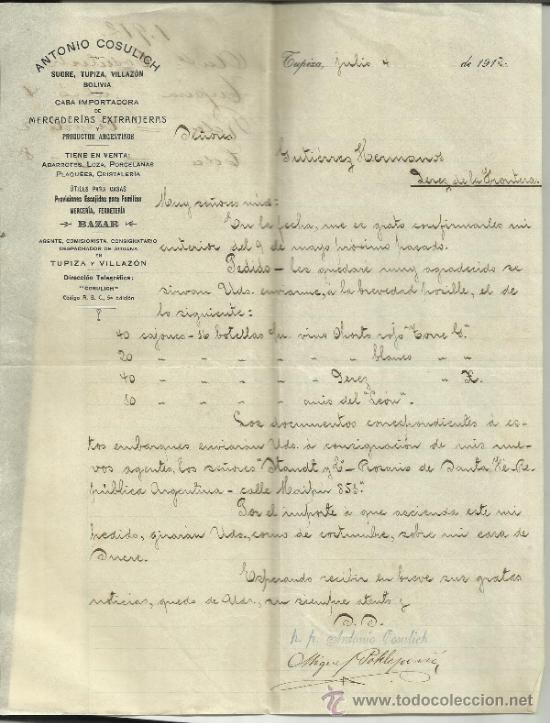 ANTONIO COSULICH
SUCRE, TUPIZA, VILLAZÓN
BOLIVIA
CASA IMPORTADORA
DE
MERCADERÍAS EXTRANJERAS
Y
PRODUCTOS ARGENTINOS
TIENE EN VENTA:
ABARROTES, LOZA, PORCELANAS
PLAQUÉES, CRISTALERÍA
ÚTILES PARA CASAS
Provisiones Escojidas para Familias
MERCERÍA, FERRETERÍA
BAZAR
AGENTE, COMISIONISTA, CONSIGNATARIO
DESPACHADOR DE ADUANA
EN
TUPIZA Y VILLAZÓN
Dirección Telegráfica:
"COSULICH"
Código A. B. C., 5ª edición
Tupiza, Julio 4 de 1912
Señores
Gutiérrez Hermanos
Jerez de la Frontera.
Muy señores mios:
En la fecha, me es grato confirmarles mi
anterior del 9 de mayo próximo pasado.
Pedido - les quedaré muy agradecido se
sirvan Uds. enviarme, á la brevedad posible, el de
lo siguiente:
40 cajones - 12 botellas c/u. vino Oporto rojo "Torre
20 " " " " " blanco " "
40 " " " " " Jerez " X.
50 " " " " anis del "León".
Los documentos correspondientes á es-
tos embarques enviarán Uds. á consignación de mis nue-
vos agentes, los señores "Staudt y Cª - Rosario de Santa Fe - Re-
pública Argentina - calle Maipu 855".
Por el importe á que ascienda este mi
pedido, girarán Uds., como de costumbre, sobre mi casa de
Sucre.
Esperando recibir en breve sus gratas
noticias, quedo de Uds., su siempre atento y
S. S.
p. p. Antonio Cosulich
Miguel
www.todocoleccion.net